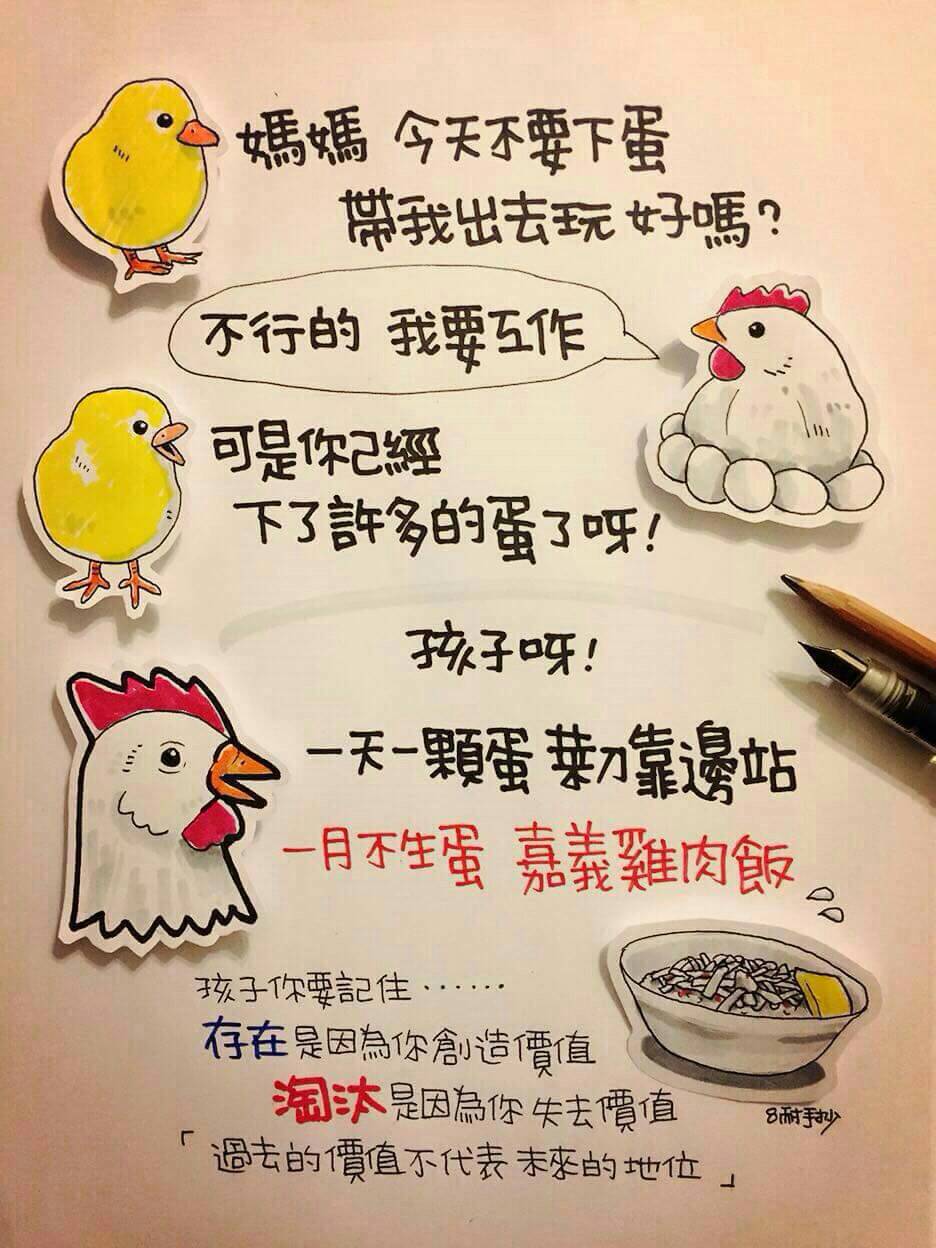 媽媽 今天不要下蛋
帶我出去玩 好嗎?
不行的 我要工作
可是你已經
下了許多的蛋了呀!
孩子呀!
一天一顆蛋 菜刀靠邊站
一月不生蛋 嘉義雞肉飯
孩子你要記住……
存在是因為你創造價值
淘汰是因為你失去價值
「過去的價值不代表未來的地位」
8耐手抄